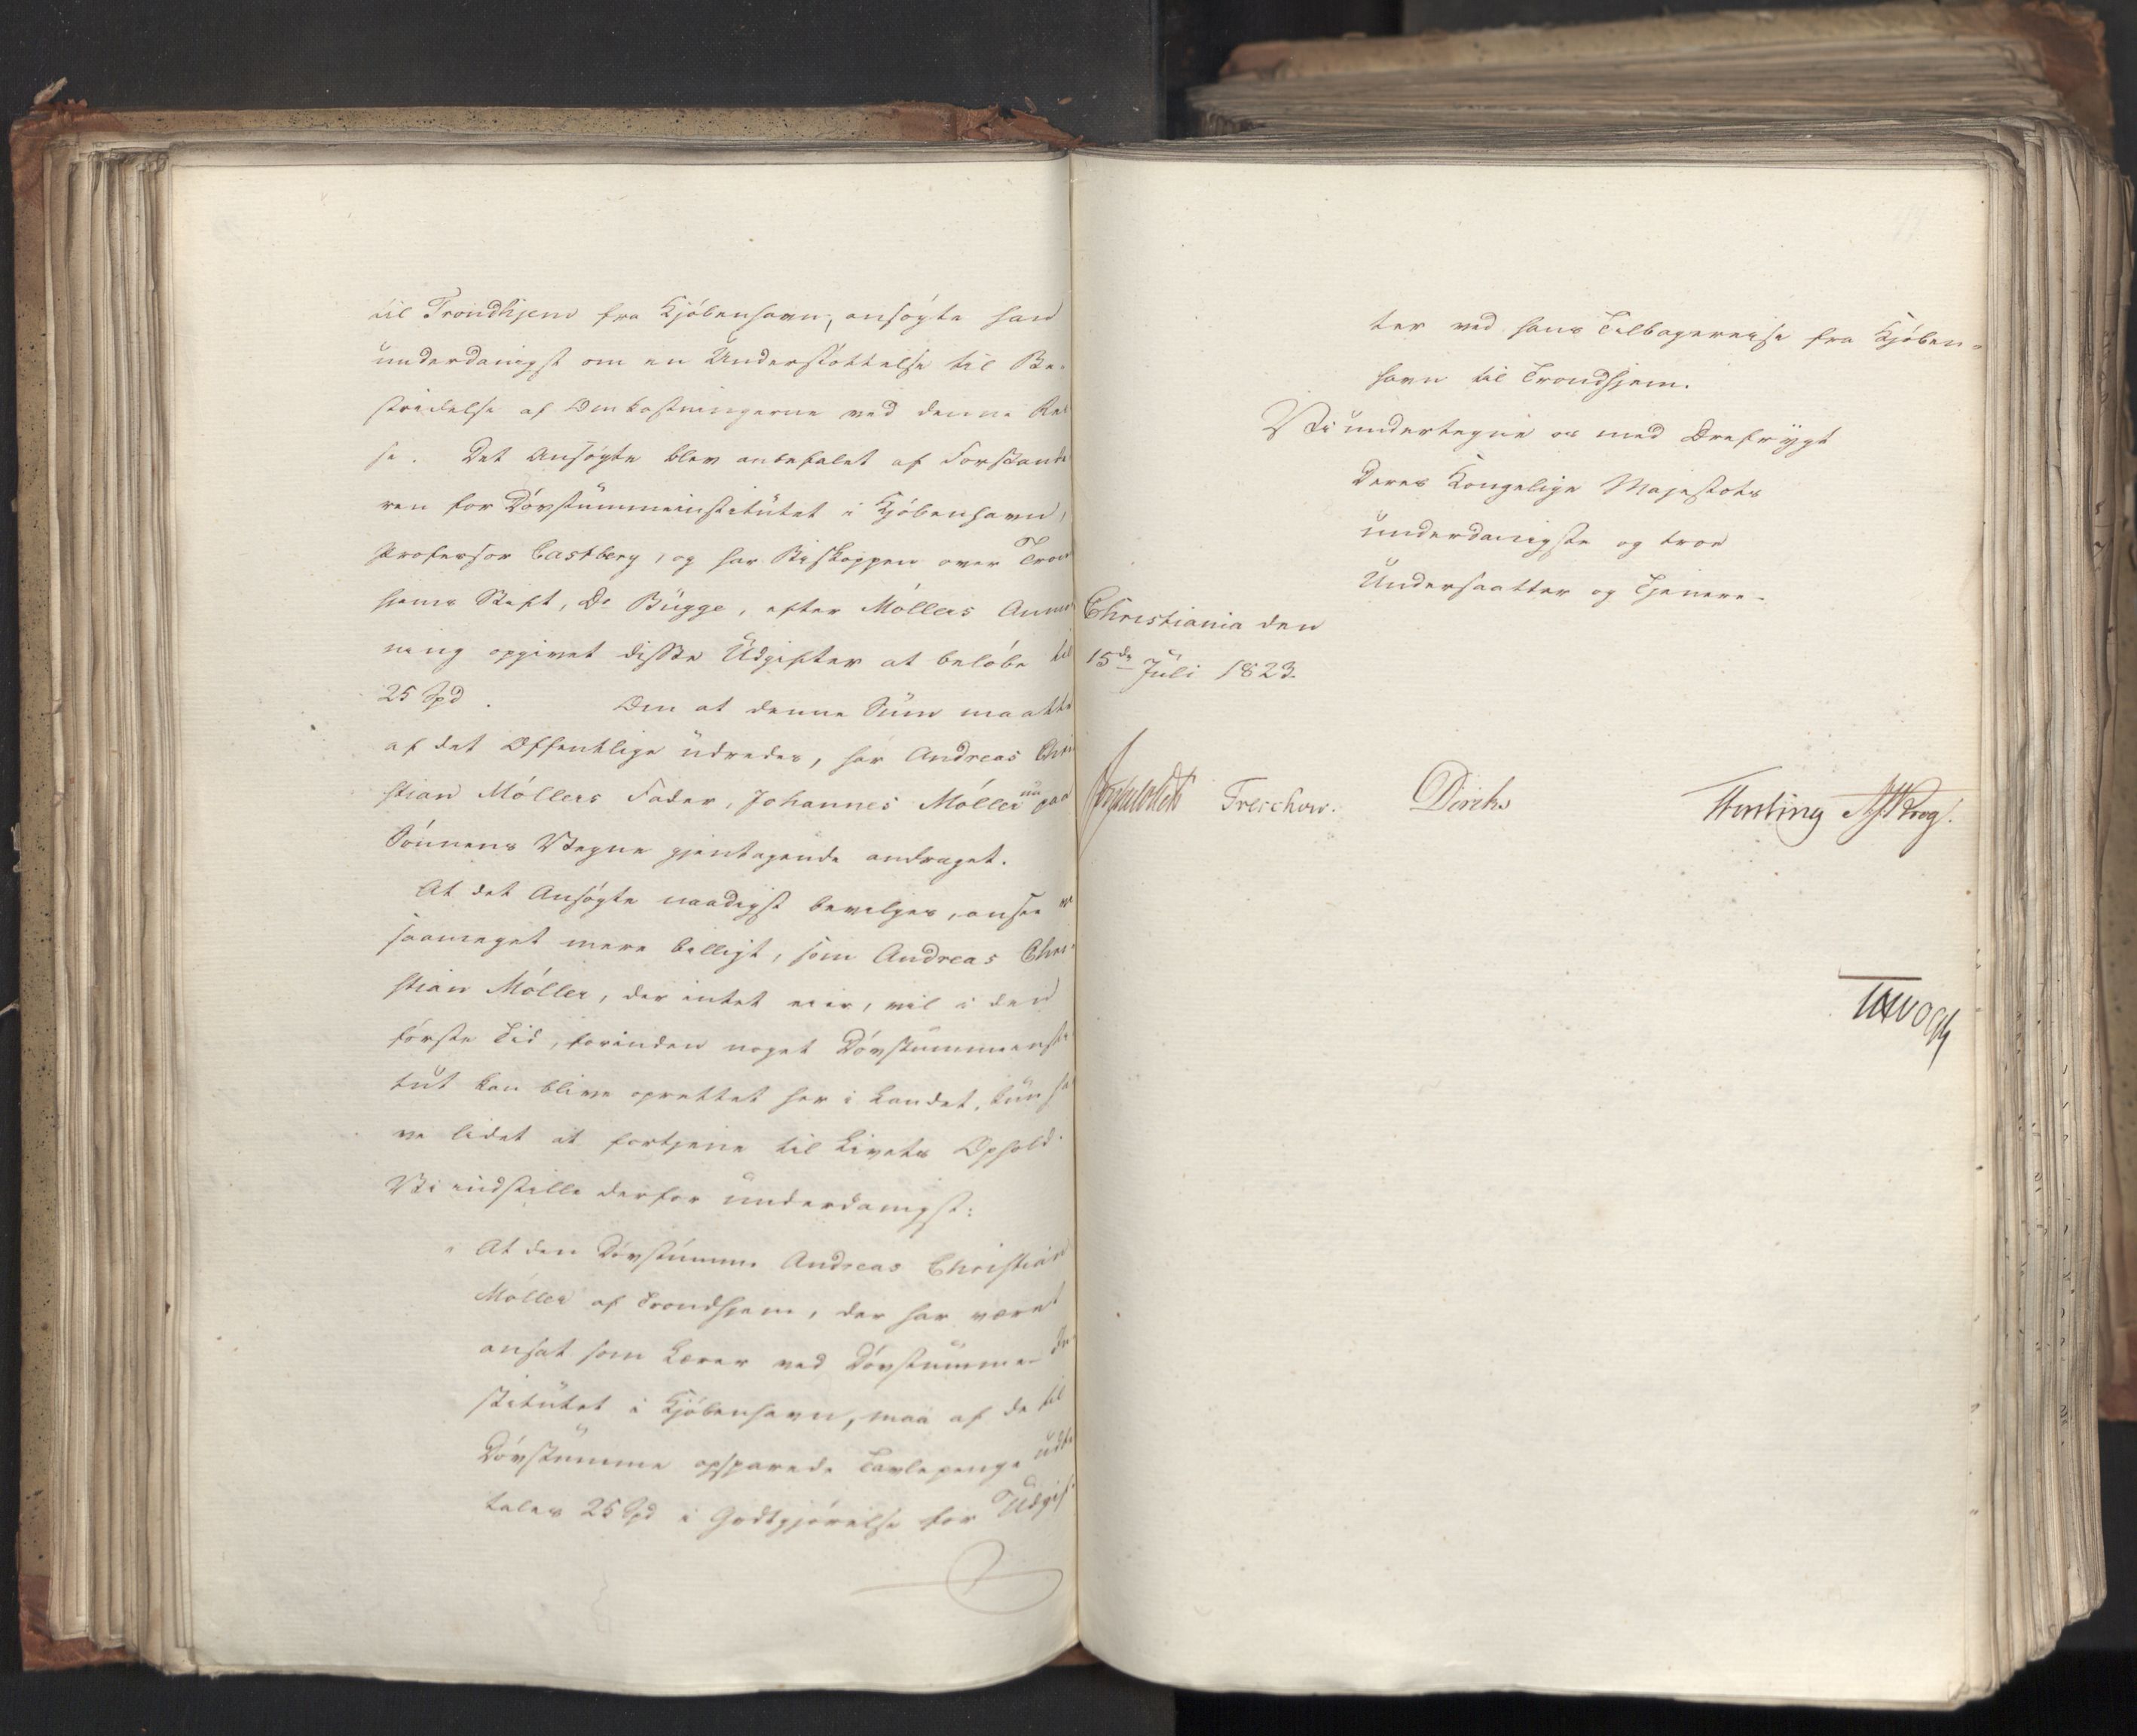 til Trondhjem fra Kjöbenhavn, ansögte han
underdanigst om en Understöttelse til Be-
stridelse af Omkostningerne ved denne Rei
se. Det Ansögte blev anbefalet af Forstande
ren for Dövstummeinstitutet i Kjöbenhavn,
Professor Castberg, og har Biskoppen over Tron
hjems Stift, Dr Bugge, efter Möllers Anme
ning opgivet disse Udgifter at belöbe til
25 Spd. Om at denne Sum maatte
af det Offentlige udredes, har Andreas Chri
stian Möllers Fader, Johannes Möller nu paa
Sönnens Vegne gjentagende andraget.
At det Ansögte naadigst bevilges, ansee vi
saameget mere billigt, som Andreas Chri-
stian Möller, der intet eier, vil i den
förste Tid, forinden noget Dövstummeinsti
tut kan blive oprettet her i Landet, kun ha
ve lidet at fortjene til Livets Ophold.
Vi indstille derfor underdanigst:
At den Dövstumme Andreas Christian
Möller af Trondhjem, der har været
ansat som Lærer ved Dövstumme-In
stitutet i Kjöbenhavn, maa af de til
Dövstumme opsparede Tavlepenge udbe
tales 25 Spd i Godtgjörelse for Udgif
ter ved hans Tilbagereise fra Kjöben-
havn til Trondhjem.
Vi undertegne os med Ærefrygt
Deres Kongelige Majestæts
underdanigste og troe
Undersaatter og Tjenere.
Christiania den
15de Juli 1823.
Treschow. Diriks Krog.